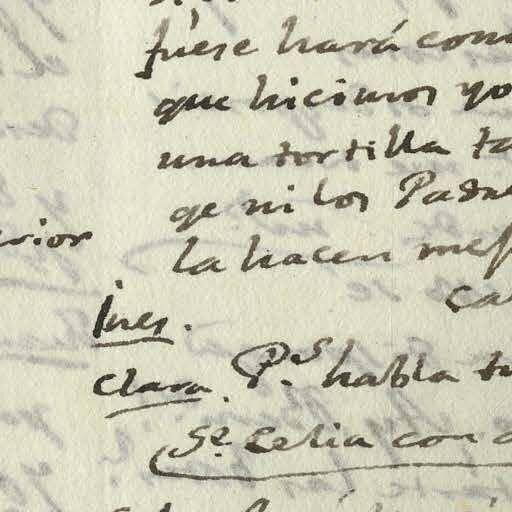 fuese hará com
que hicimos yo
una tortilla ta
qe ni los Padre
erior
la hacen mej
ca
Ines.
Clara. P.s habla tu
Se. Celia con